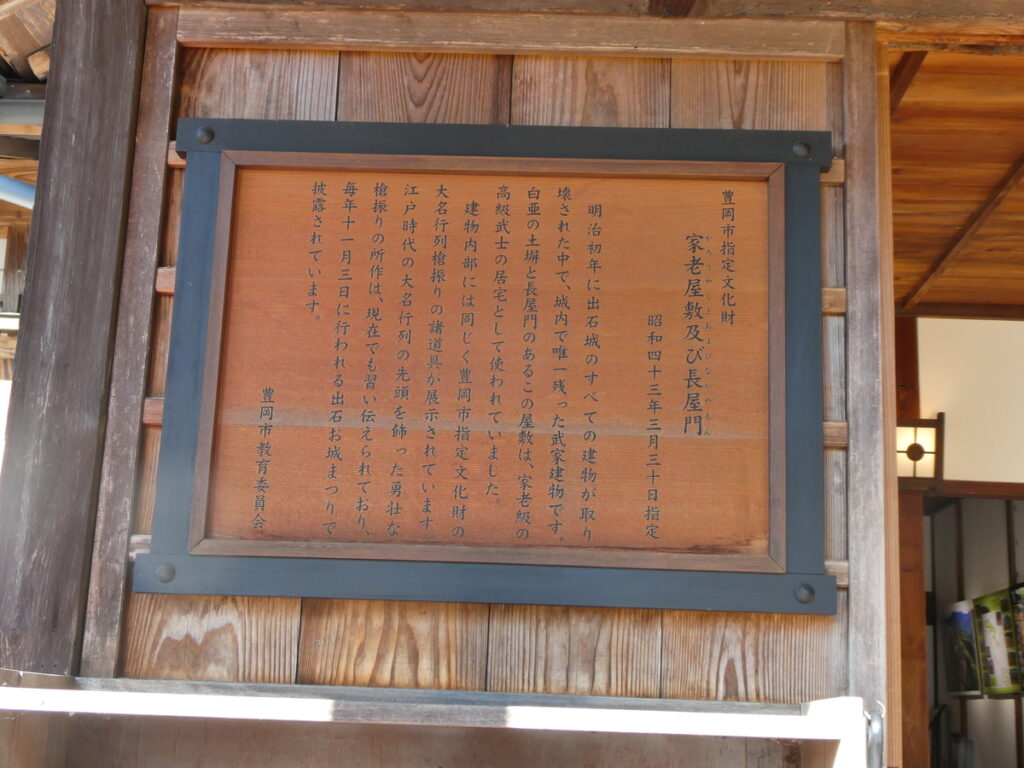 豊岡市指定文化財
かろうやしきおよびながやもん
家老屋敷及び長屋門
昭和四十三年三月三十日指定
明治初年に出石城のすべての建物が取り
壊された中で、城内で唯一残った武家建物です。
白亜の土塀と長屋門のあるこの屋敷は、家老級の
高級武士の居宅として使われていました。
建物内部には同じく豊岡市指定文化財の
大名行列槍振りの諸道具が展示されています
江戸時代の大名行列の先頭を飾った勇壮な
槍振りの所作は、現在でも習い伝えられており、
毎年十一月三日に行われる出石お城まつりで
披露されています。
豊岡市教育委員会